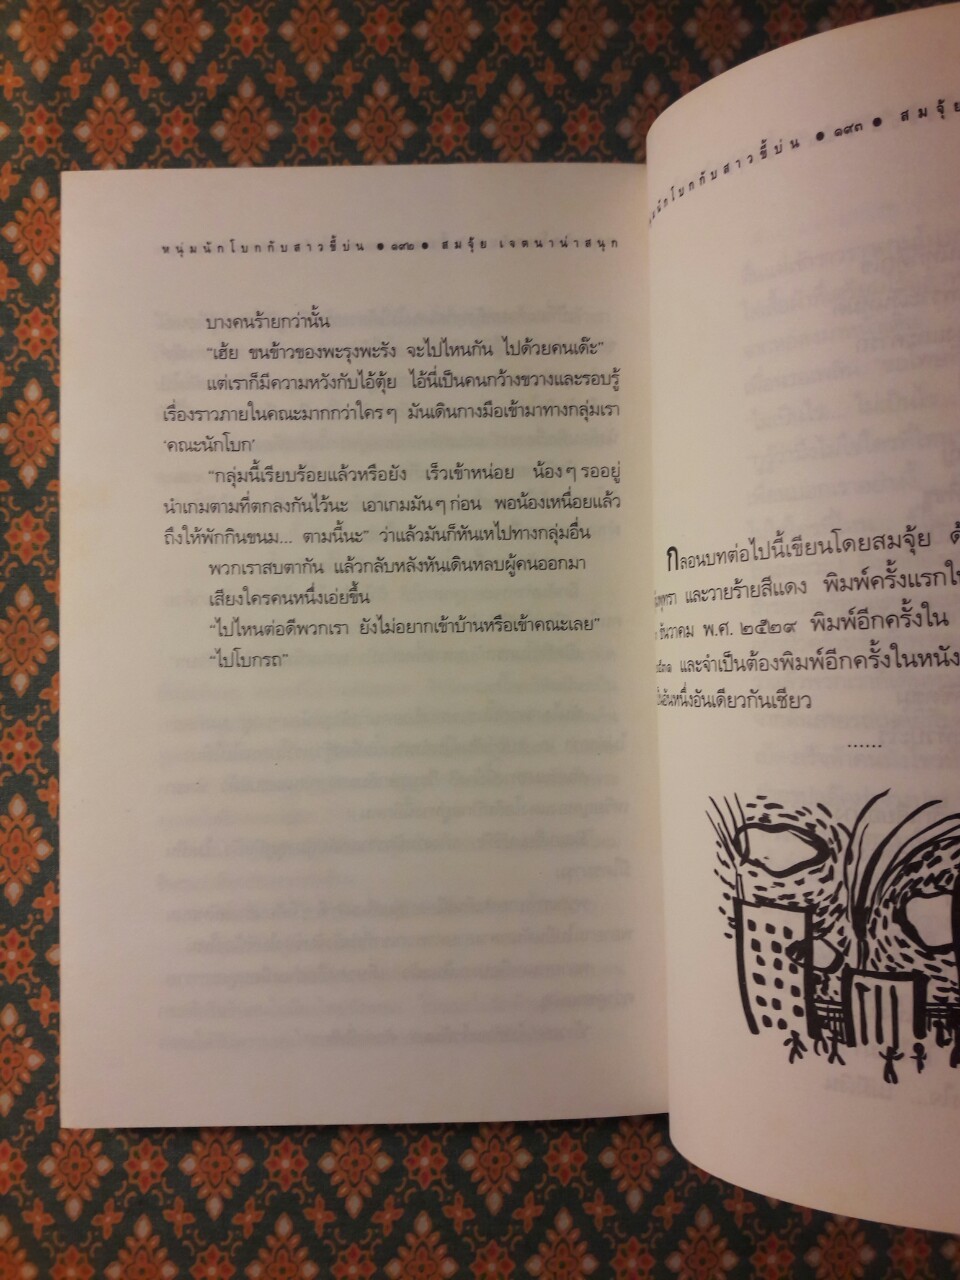 หนุ่มนักโบกกับสาวขี้บ่น ● ๑๙๒ ● สมจุ้ย เจตนาน่าสนุก
บางคนร้ายกว่านั้น
“เฮ้ย ขนข้าวของพะรุงพะรัง จะไปไหนกัน ไปด้วยคนเด๊ะ”
แต่เราก็มีความหวังกับไอ้ตุ้ย ไอ้นี่เป็นคนกว้างขวางและรอบรู้
เรื่องราวภายในคณะมากกว่าใครๆ มันเดินกางมือเข้ามาทางกลุ่มเรา
‘คณะนักโบก’
“กลุ่มนี้เรียบร้อยแล้วหรือยัง เร็วเข้าหน่อย น้องๆ รออยู่
นำเกมตามที่ตกลงกันไว้นะ เอาเกมมันๆ ก่อน พอน้องเหนื่อยแล้ว
ถึงให้พักกินขนม... ตามนี้นะ” ว่าแล้วมันก็หันเหไปทางกลุ่มอื่น
พวกเราสบตากัน แล้วกลับหลังหันเดินหลบผู้คนออกมา
เสียงใครคนหนึ่งเอ่ยขึ้น
“ไปไหนต่อดีพวกเรา ยังไม่อยากเข้าบ้านหรือเข้าคณะเลย”
“ไปโบกรถ”
นักโบกกับสาวขี้บ่น ● ๑๙๓ ● สมจุ้ย
กลอนบทต่อไปนี้เขียนโดยสมจุ้ย
และวายร้ายสีแดง พิมพ์ครั้งแรกใน
ธันวาคม พ.ศ. ๒๕๒๙ พิมพ์อีกครั้งใน
และจำเป็นต้องพิมพ์อีกครั้งในหนัง
อันหนึ่งอันเดียวกันเชียว
......